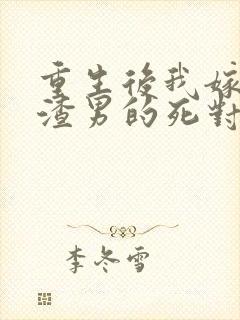 重生後我嫁
渣男的死對
李冬雪